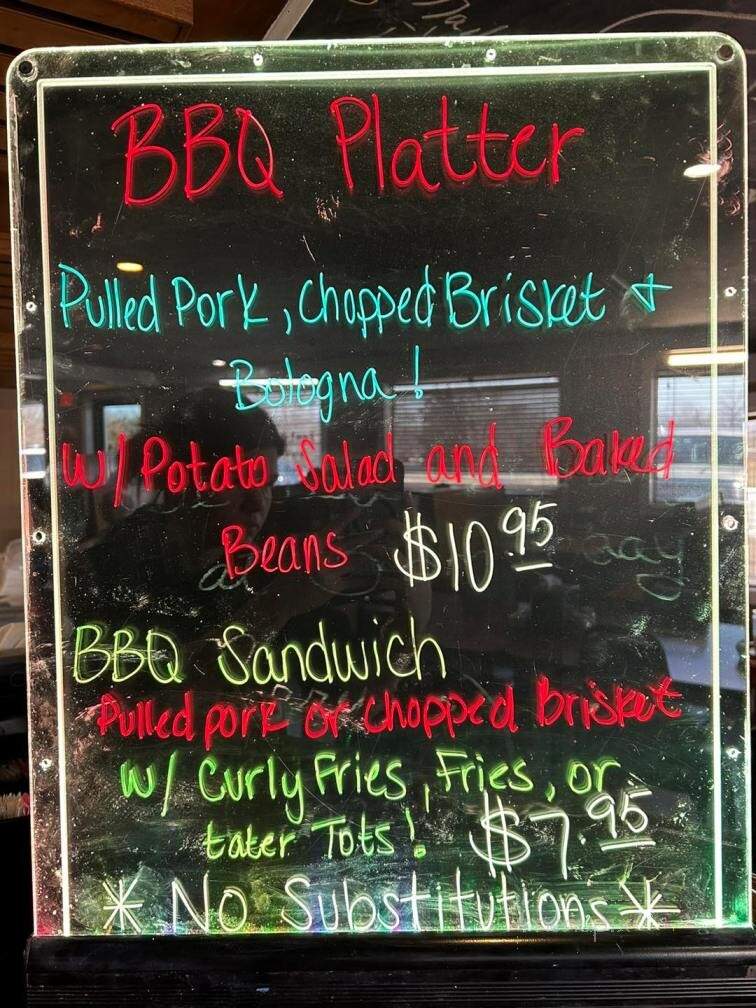 BBQ Platter
Pulled Pork, Chopped Brisket &
Bologna!
w/ Potato Salad and Baked
Beans $10 95
BBQ Sandwich
Pulled pork or Chopped Brisket
w/ Curly Fries, Fries, or
tater Tots! $7.95
*No Substitutions*